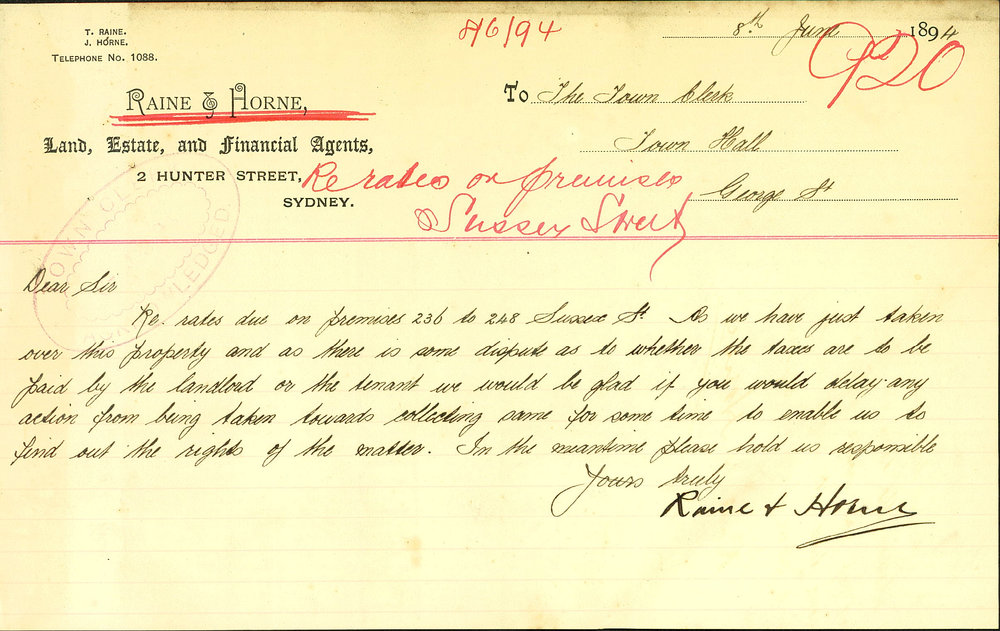 T. RAINE.
J. HORNE.
TELEPHONE No. 1088.
8/6/94
8th June 1894
920
RAINE & HORNE,
To The Town Clerk
Land, Estate, and Financial Agents,
Town Hall
2 HUNTER STREET,
SYDNEY.
George St
Re rates on premises
Sussex Street
Dear Sir
Re. rates due on premises 236 to 248 Sussex St. As we have just taken
over this property and as there is some dispute as to whether the taxes are to be
paid by the landlord or the tenant we would be glad if you would delay any
action from being taken towards collecting same for some time to enable us to
find out the rights of the matter. In the meantime please hold us responsible
Yours truly
Raine & Horne